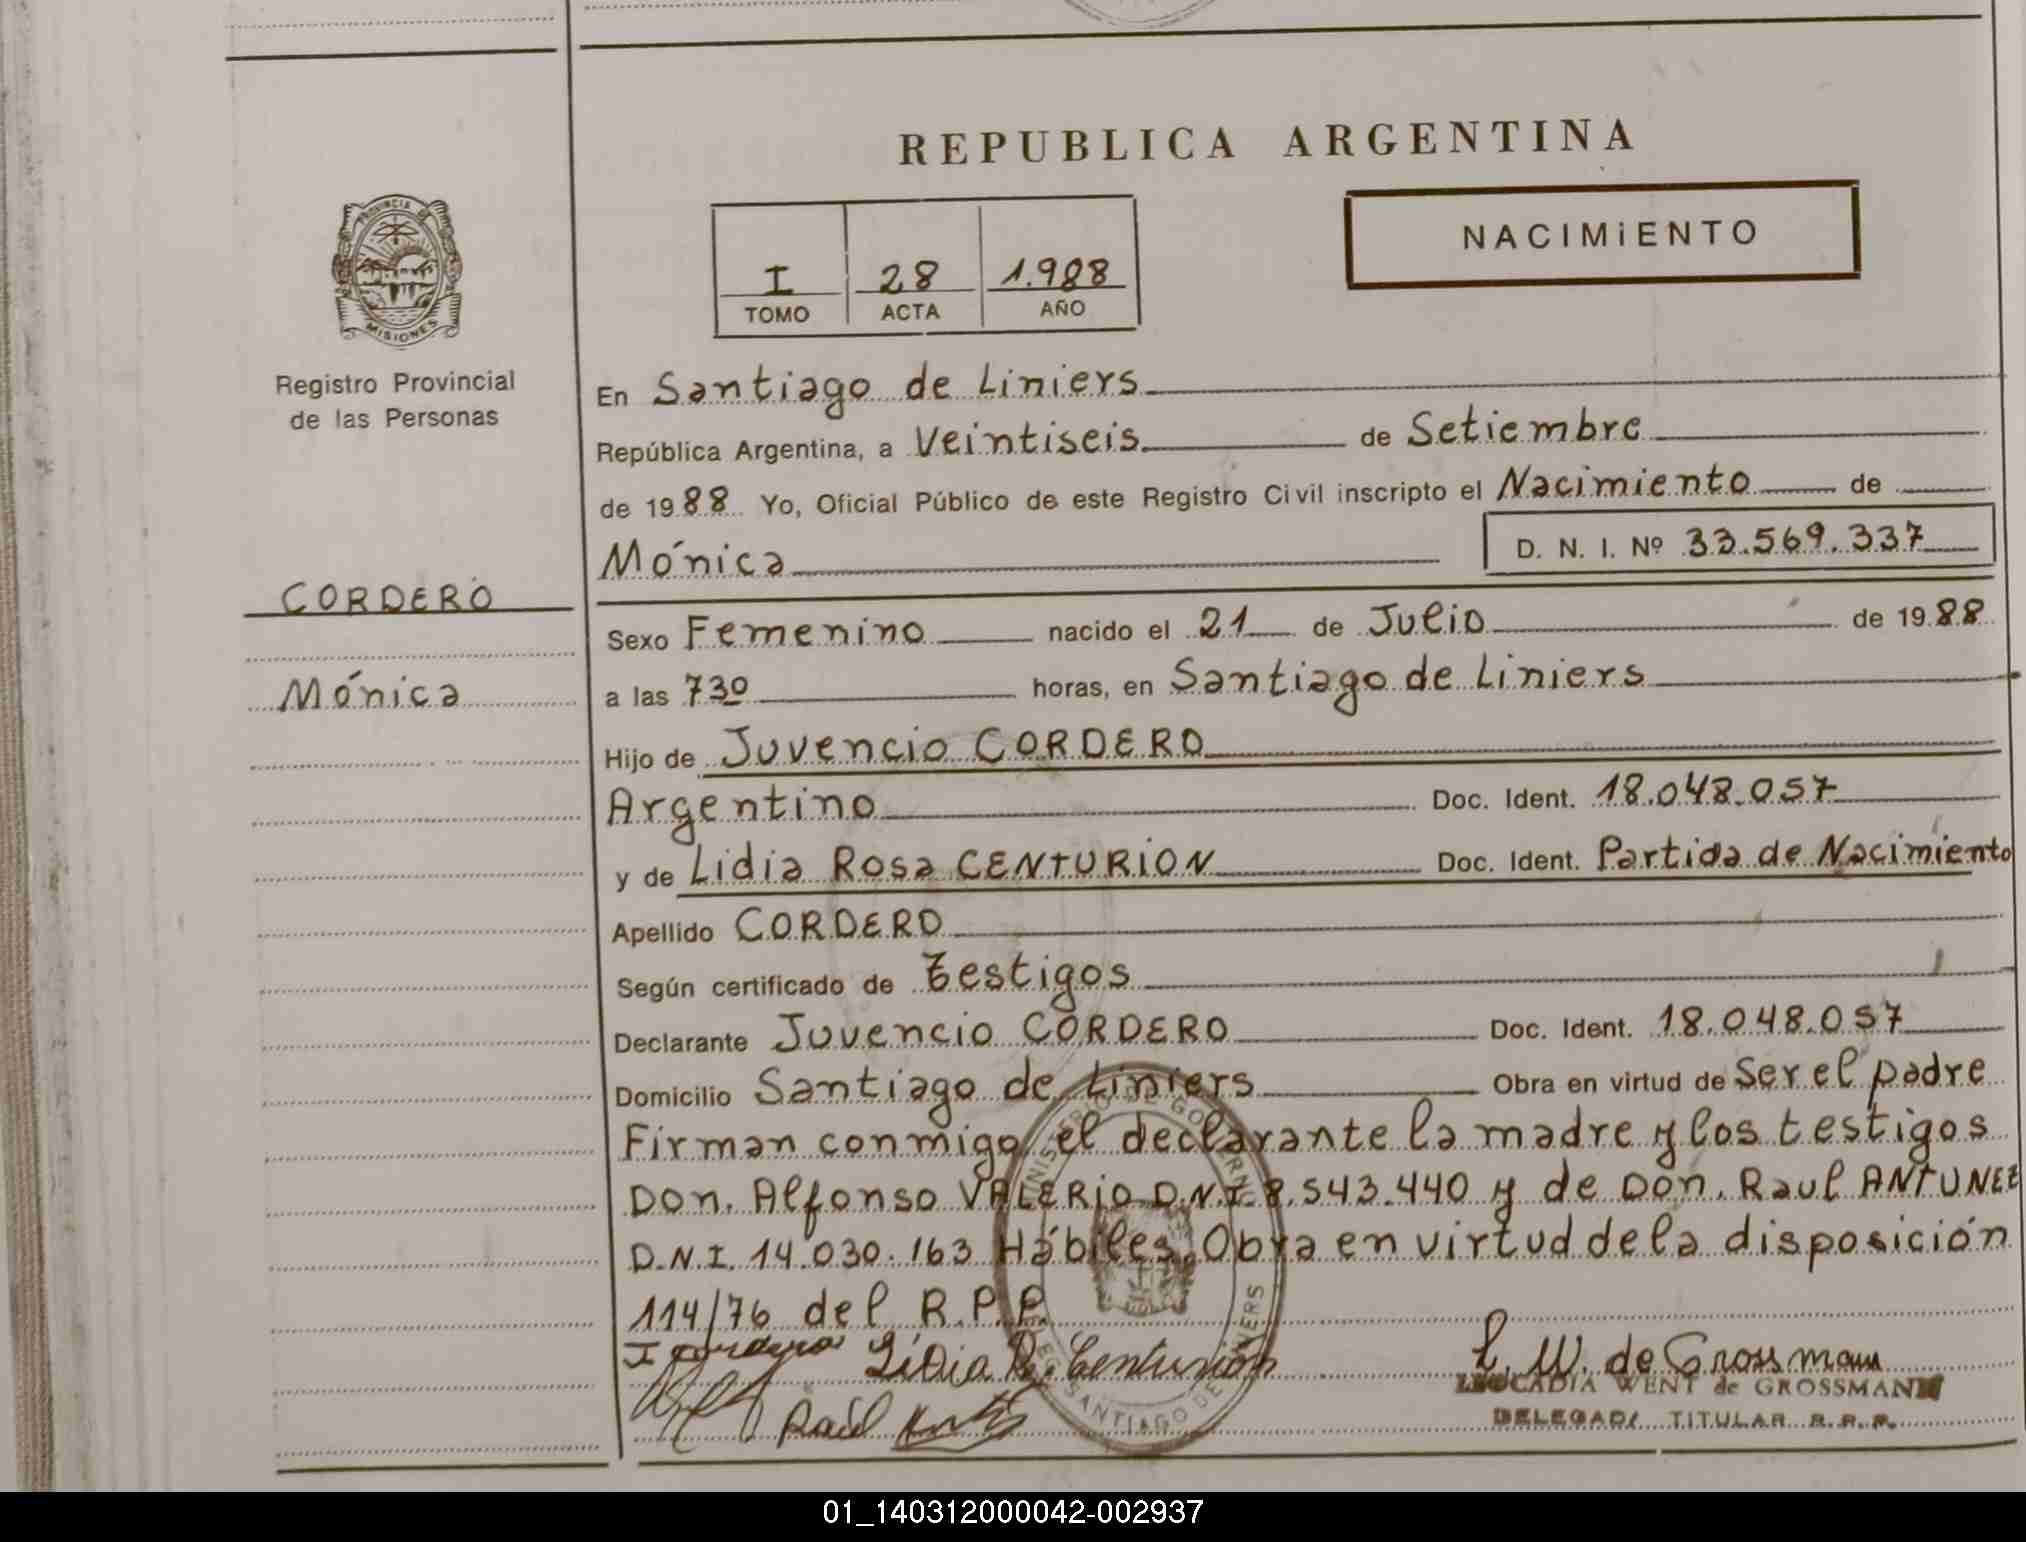 REPUBLICA ARGENTINA
NACIMIENTO
PROVINCIA DE
MISIONES
I 28 1.988
TOMO ACTA AÑO
Registro Provincial
de las Personas
CORDERO
Mónica
En Santiago de Liniers
República Argentina, a Veintiseis de Setiembre
de 1988 Yo, Oficial Público de este Registro Civil inscripto el Nacimiento de
Mónica D. N. I. Nº 33.569.337
Sexo Femenino nacido el 21 de Julio de 1988
a las 730 horas, en Santiago de Liniers
Hijo de Juvencio CORDERO
Argentino Doc. Ident. 18.048.057
y de Lidia Rosa CENTURION Doc. Ident. Partida de Nacimiento
Apellido CORDERO
Según certificado de testigos
Declarante Juvencio CORDERO Doc. Ident. 18.048.057
Domicilio Santiago de Liniers Obra en virtud de Ser el padre
Firman conmigo, el declarante la madre y los testigos
Don. Alfonso VALERIO D.N.I. 8.543.440 y de Don. Raul ANTUNEZ
D.N.I. 14.030.163 Hábiles. Obra en virtud de la disposición
114/76 del R.P.P.
Lidia R. Centurión
L. W. de Grossmann
LEOCADIA WENT de GROSSMANN
Raúl
DELEGADA TITULAR R.R.P.
SANTIAGO DE LINIERS
01_140312000042-002937